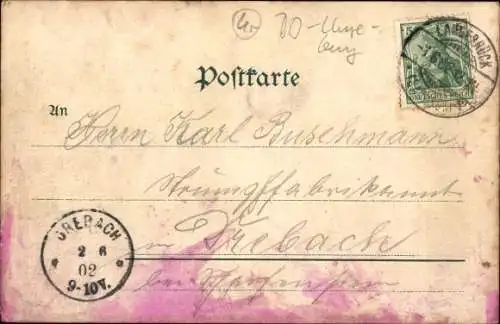 DO-Umge-
bung
Postkarte
An
Herrn Karl Buschmann
Strumpffabrikant
in Drebach
bei Scharfenstein
DREBACH
2 6
02
9-10V.